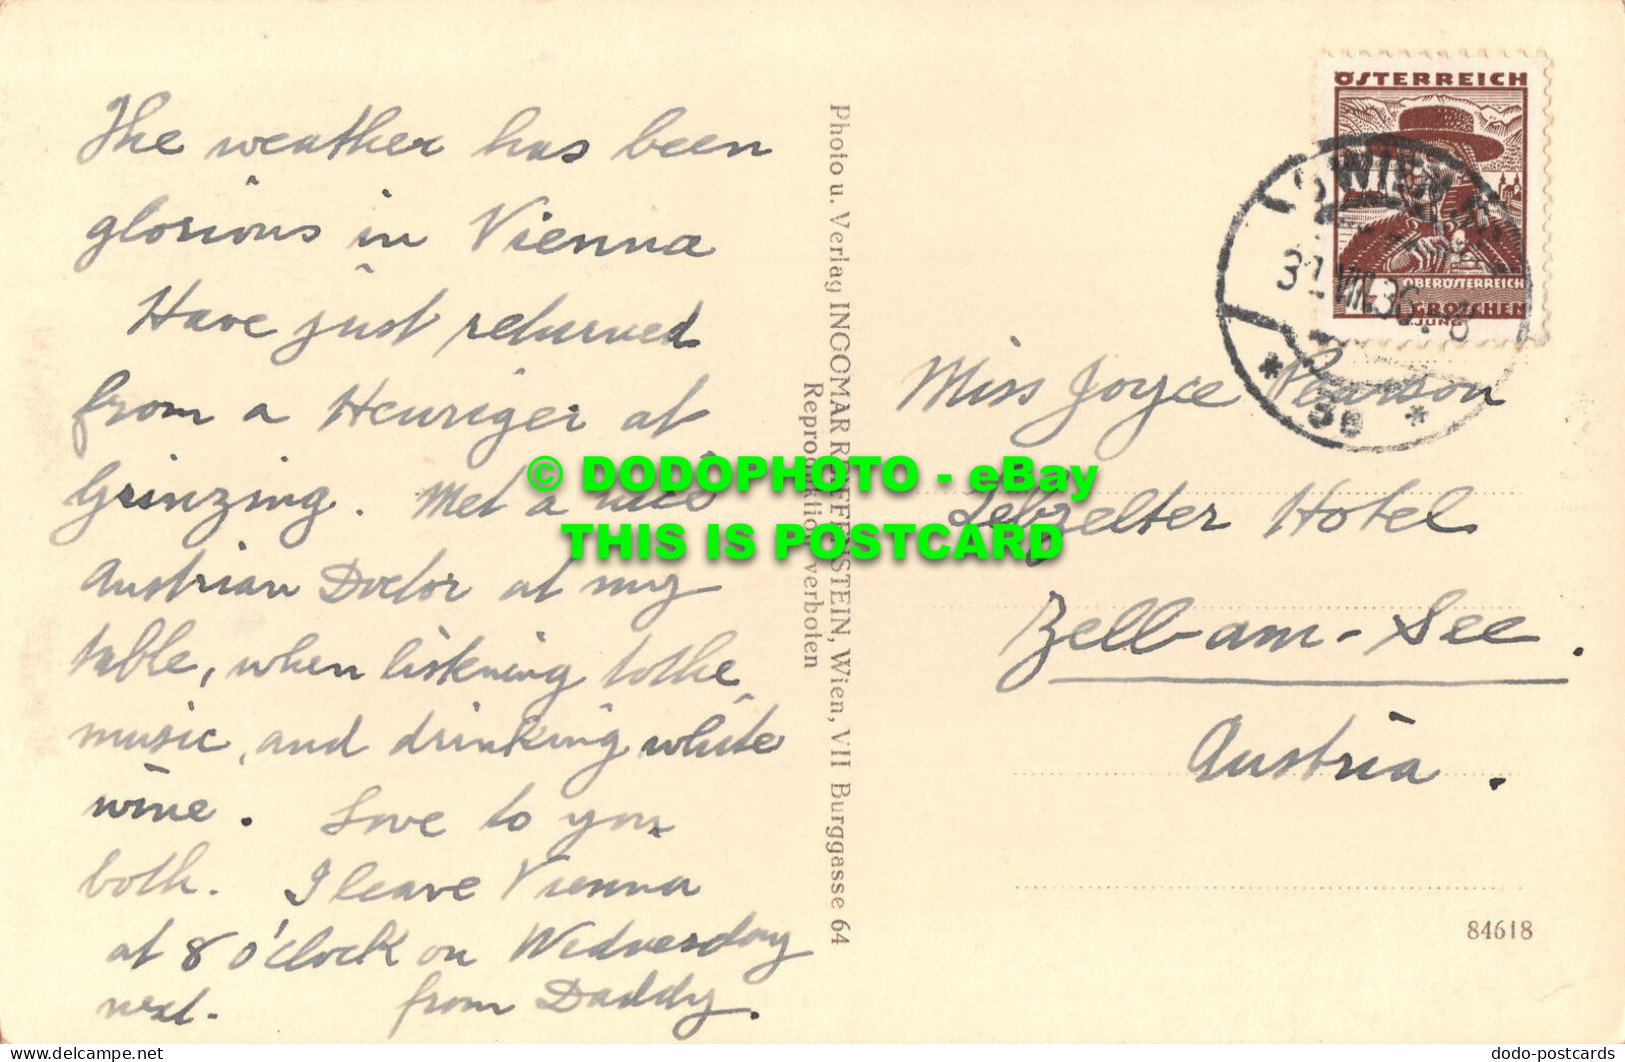 The weather has been
glorious in Vienna
Have just returned
from a Heuriger at
Grinzing. Met a nice
Austrian Doctor at my
table, when listening to the
music, and drinking white
wine. Love to you
both. I leave Vienna
at 8 o'clock on Wednesday
next. from Daddy.
Photo u. Verlag INGOMAR REIFFENSTEIN, Wien, VII Burggasse 64
Reproduktion verboten
ÖSTERREICH
OBERÖSTERREICH
3 GROSCHEN
JUNG
WIEN
31.VIII.36
Miss Joyce Pearson
Lebzelter Hotel
Zell-am-See.
Austria.
84618
© DODOPHOTO - eBay
THIS IS POSTCARD
www.delcampe.net
dodo-postcards